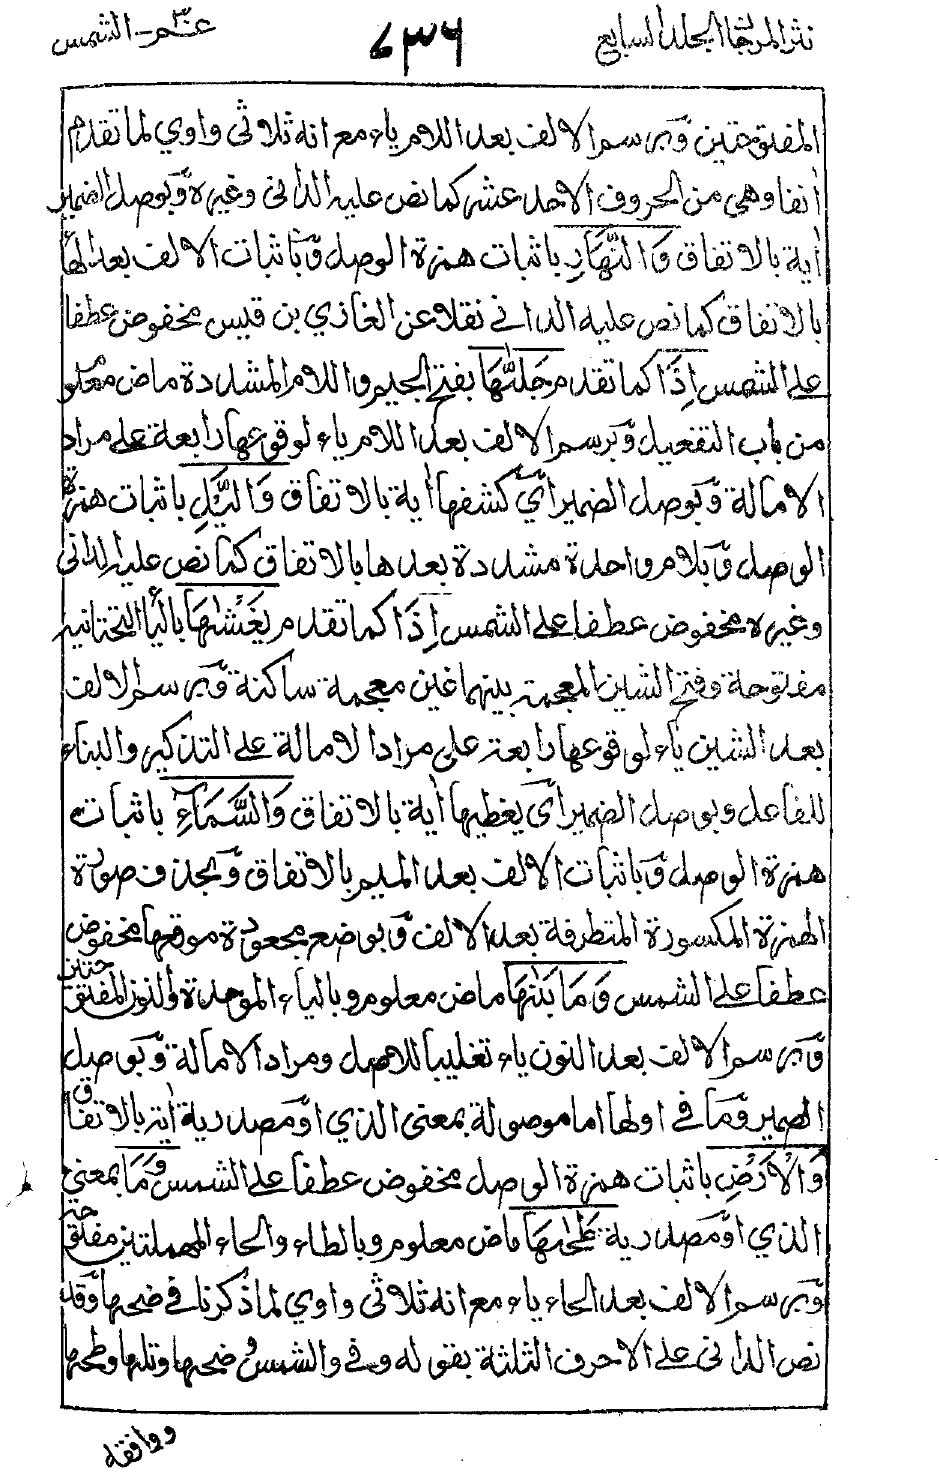 نثر المرجان الجلد السابع
٧٣٦
عمّ - الشمس
المفتوحتين وّبرسم الالف بعد اللام ياء مع انه ثلاثى واوي لما تقدم
اٰنفا وهي من الحروف الاحد عشر كما نص عليه الدانى وغيره وّبوصل الضمير
اٰية بالاتفاق وَالنَّهَارِ باثبات همزة الوصل وّباثبات الالف بعد الهاء
بالاتفاق كما نص عليه الدانى نقلا عن الغازي بن قيس مخفوض عطفا
على الشمس اِذَا كما تقدم جَلّٰىهَا بفتح الجيم واللام المشددة ماض معلوم
من باب التفعيل وّبرسم الالف بعد اللام ياء لوقوعها رابعة على مراد
الامالة وّبوصل الضمير اي كشفها اٰية بالاتفاق وَالَّيْلِ باثبات همزة
الوصل وّبلام واحدة مشددة بعدها بالاتفاق كما نص عليه الدانى
وغيره مخفوض عطفا على الشمس اِذَا كما تقدم يَغْشٰىهَا بالياء التحتانية
مفتوحة وفتح الشين المعجمة بينهما غين معجمة ساكنة وّبرسم الالف
بعد الشين ياء لوقوعها رابعة على مراد الامالة على التذكير والبناء
للفاعل وبوصل الضمير اى يغطيها اٰية بالاتفاق وَالسَّمَآءِ باثبات
همزة الوصل وّباثبات الالف بعد الميم بالاتفاق وّبحذف صورة
الهمزة المكسورة المتطرفة بعد الالف وّبوضع مجعودة موقعها مخفوض
عطفا على الشمس وَمَا بَنٰىهَا ماض معلوم وبالباء الموحدة والنون المفتوحتين
وّبرسم الالف بعد النون ياء تغليبا للاصل ومراد الامالة وّبوصل
الضمير وّمَا فى اولها اما موصولة بمعنى الذي اوّمصدرية اٰية بالاتفاق
وَالْاَرْضِ باثبات همزة الوصل مخفوض عطفا على الشمس وَمَا بمعنى
الذي اوّمصدرية طَحٰىهَا ماض معلوم وبالطاء والحاء المهملتين مفتوحتين
وّبرسم الالف بعد الحاء ياء مع انه ثلاثى واوي لما ذكرنا فى ضحىها وّقد
نص الدانى على الاحرف الثلثة بقوله وفى والشمس وضحىها وتلىها وطحىها
ووافقه